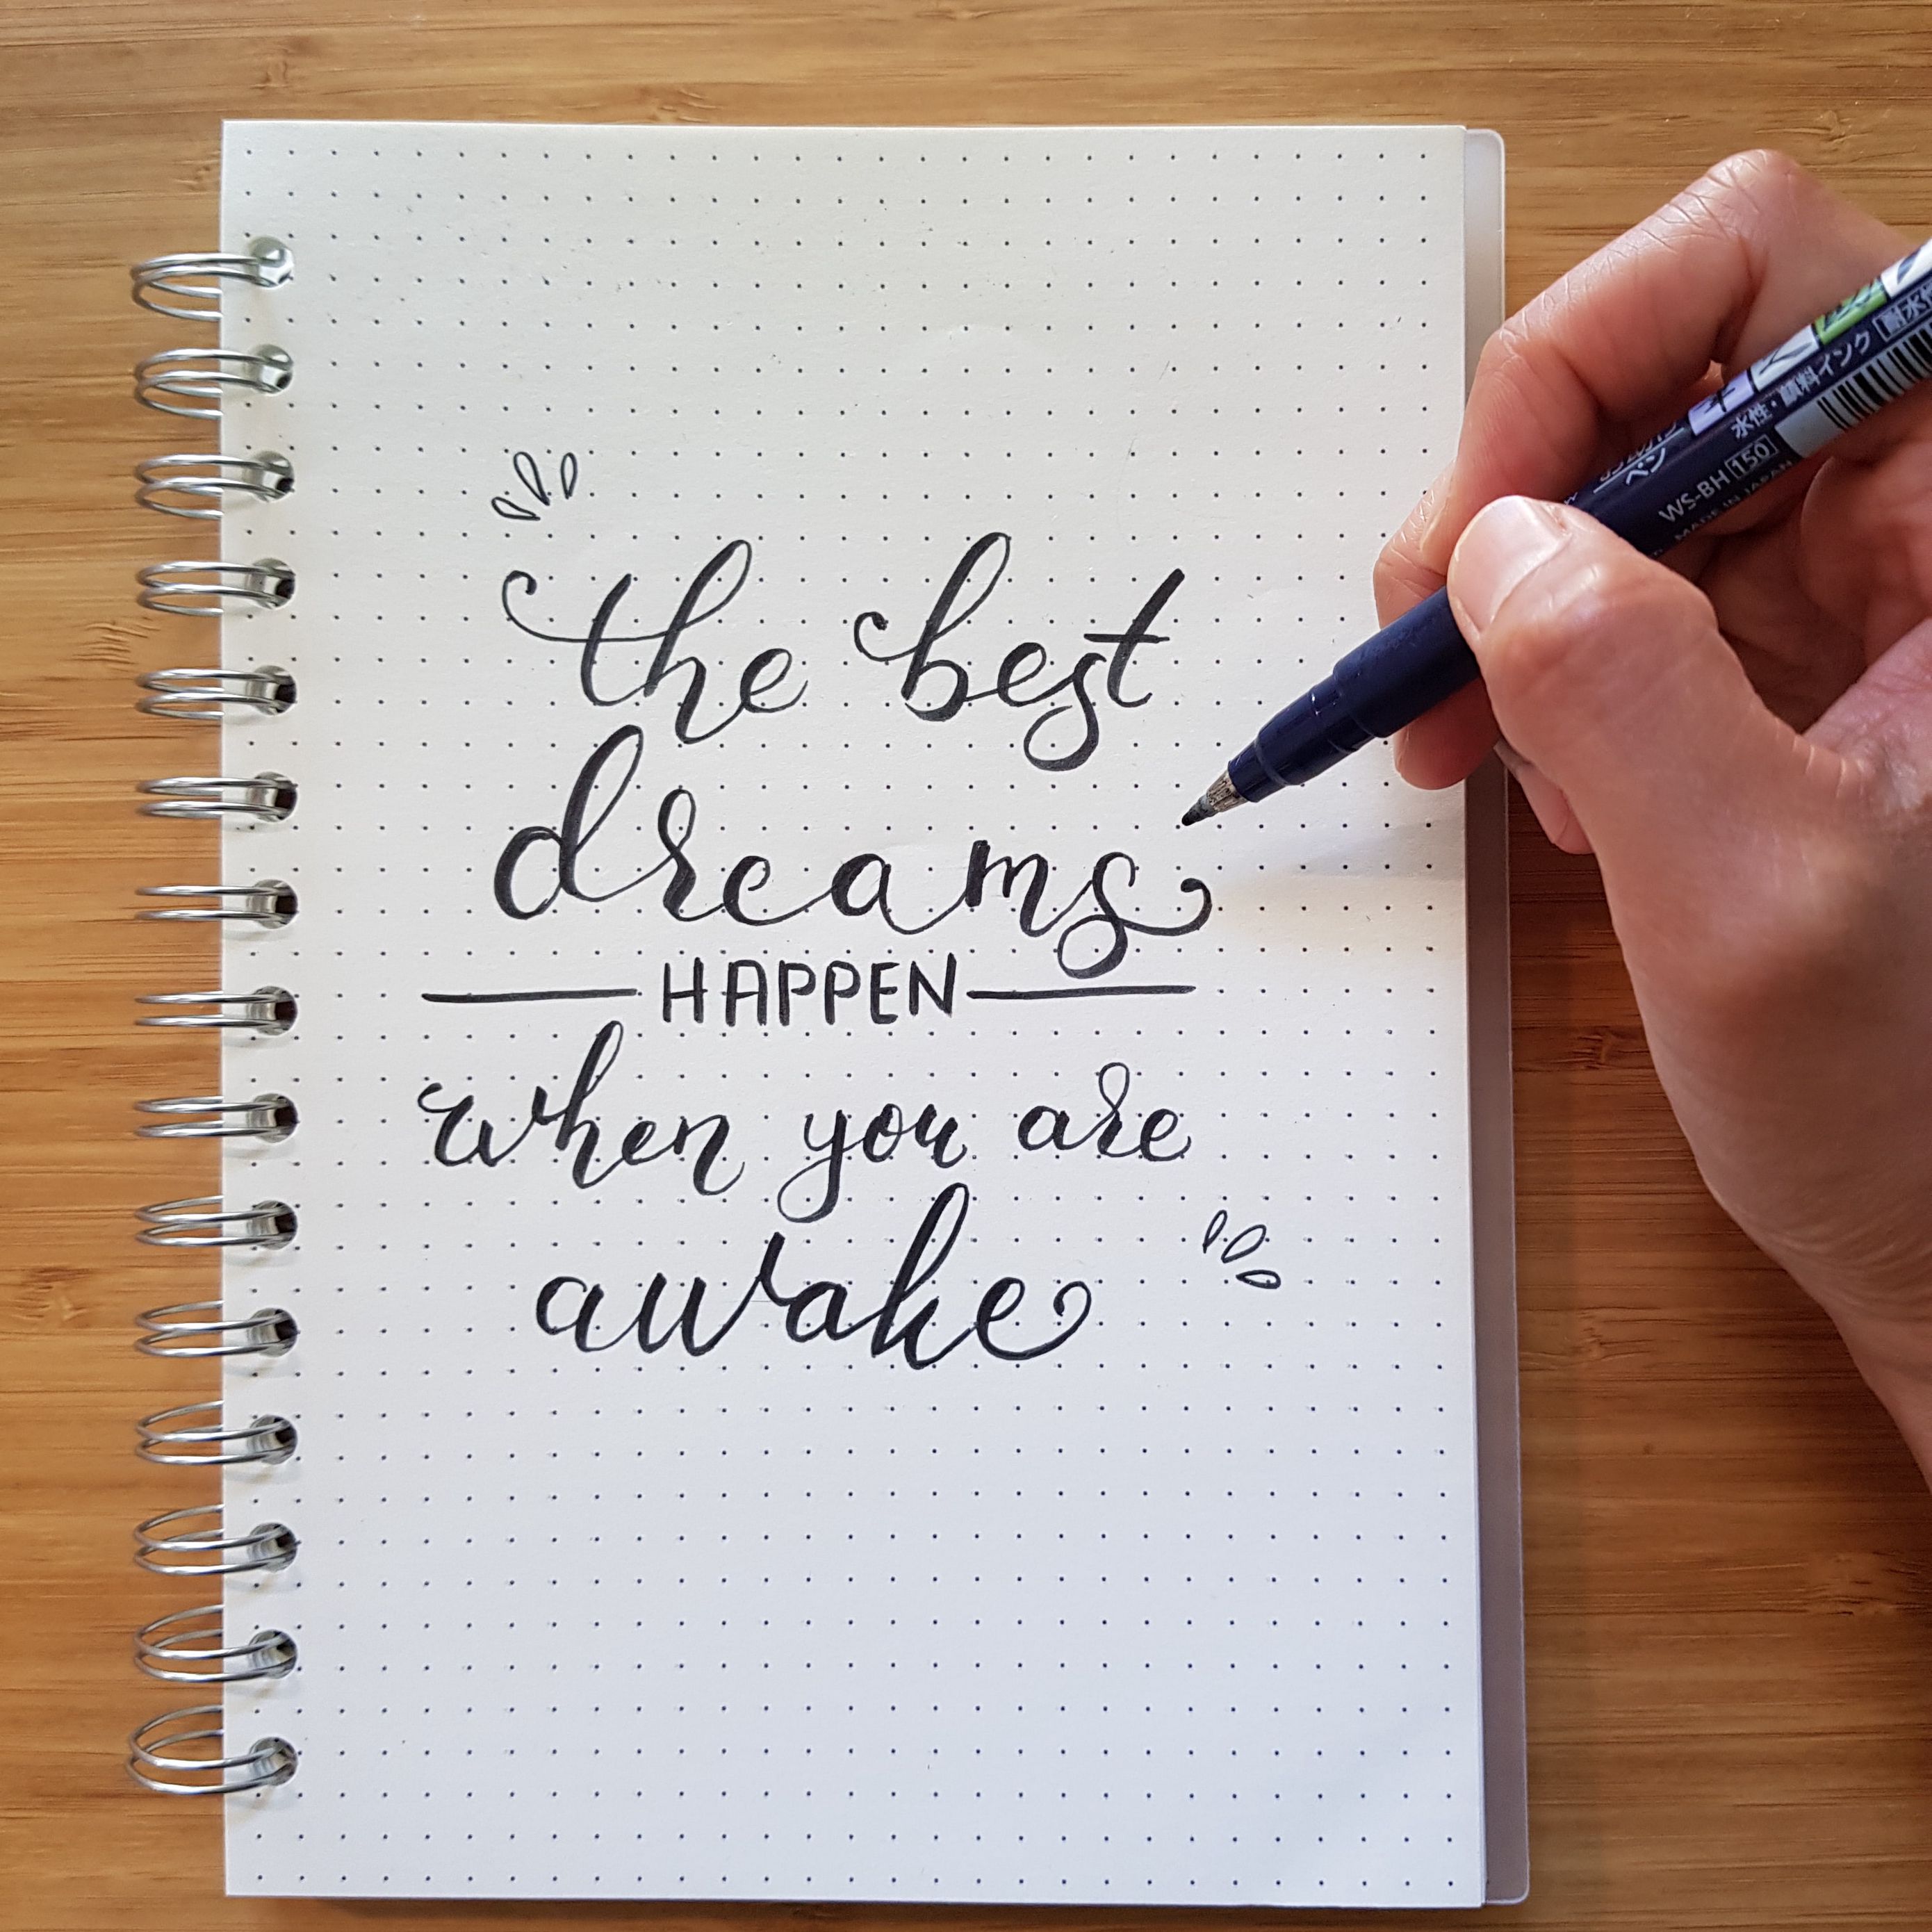 the best
dreams
HAPPEN
when you are
awake
水性・顔料インク
ペン
WS-BH 150
MADE IN JAPAN